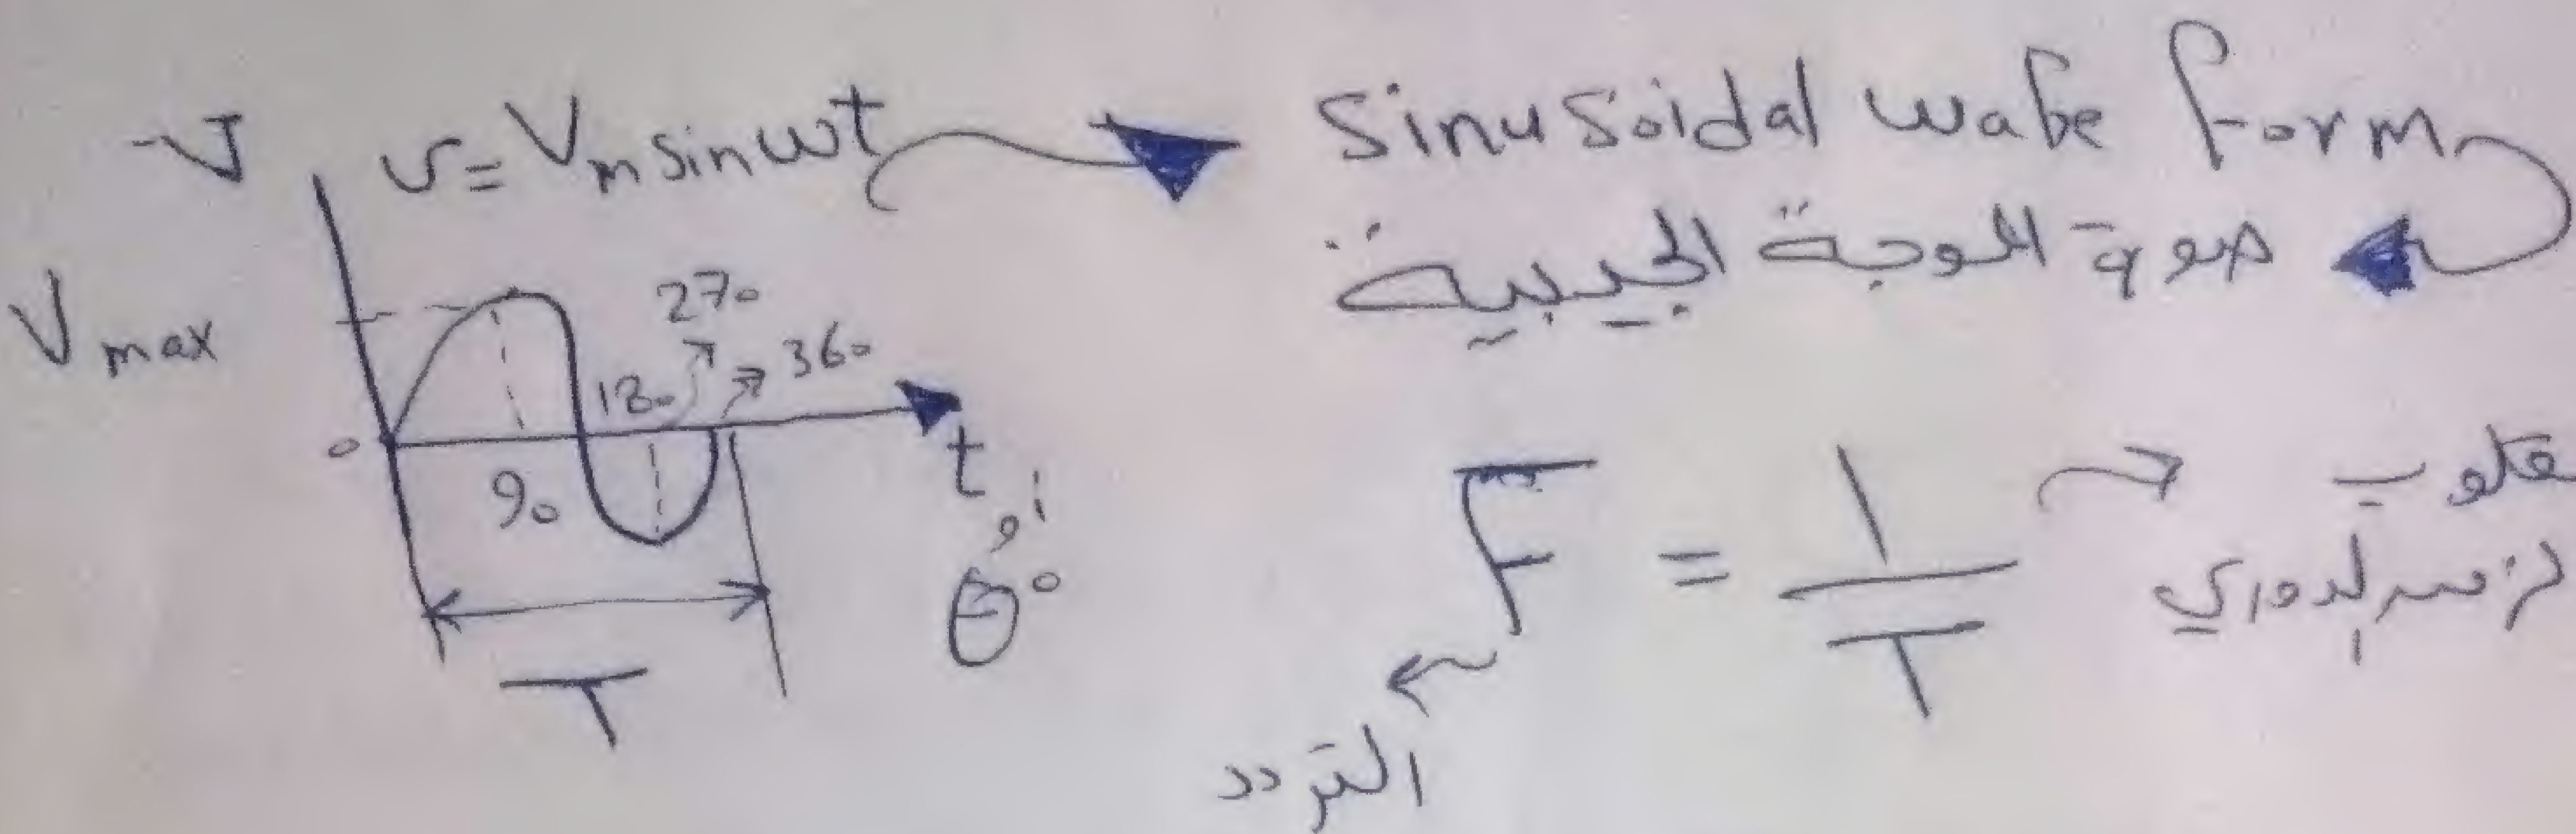 v v = Vm sin ωt
Sinusoidal wave form
صورة الموجة الجيبية
Vmax
270
180
360
0
90
t
أو
θ°
T
F = 1/T
التردد